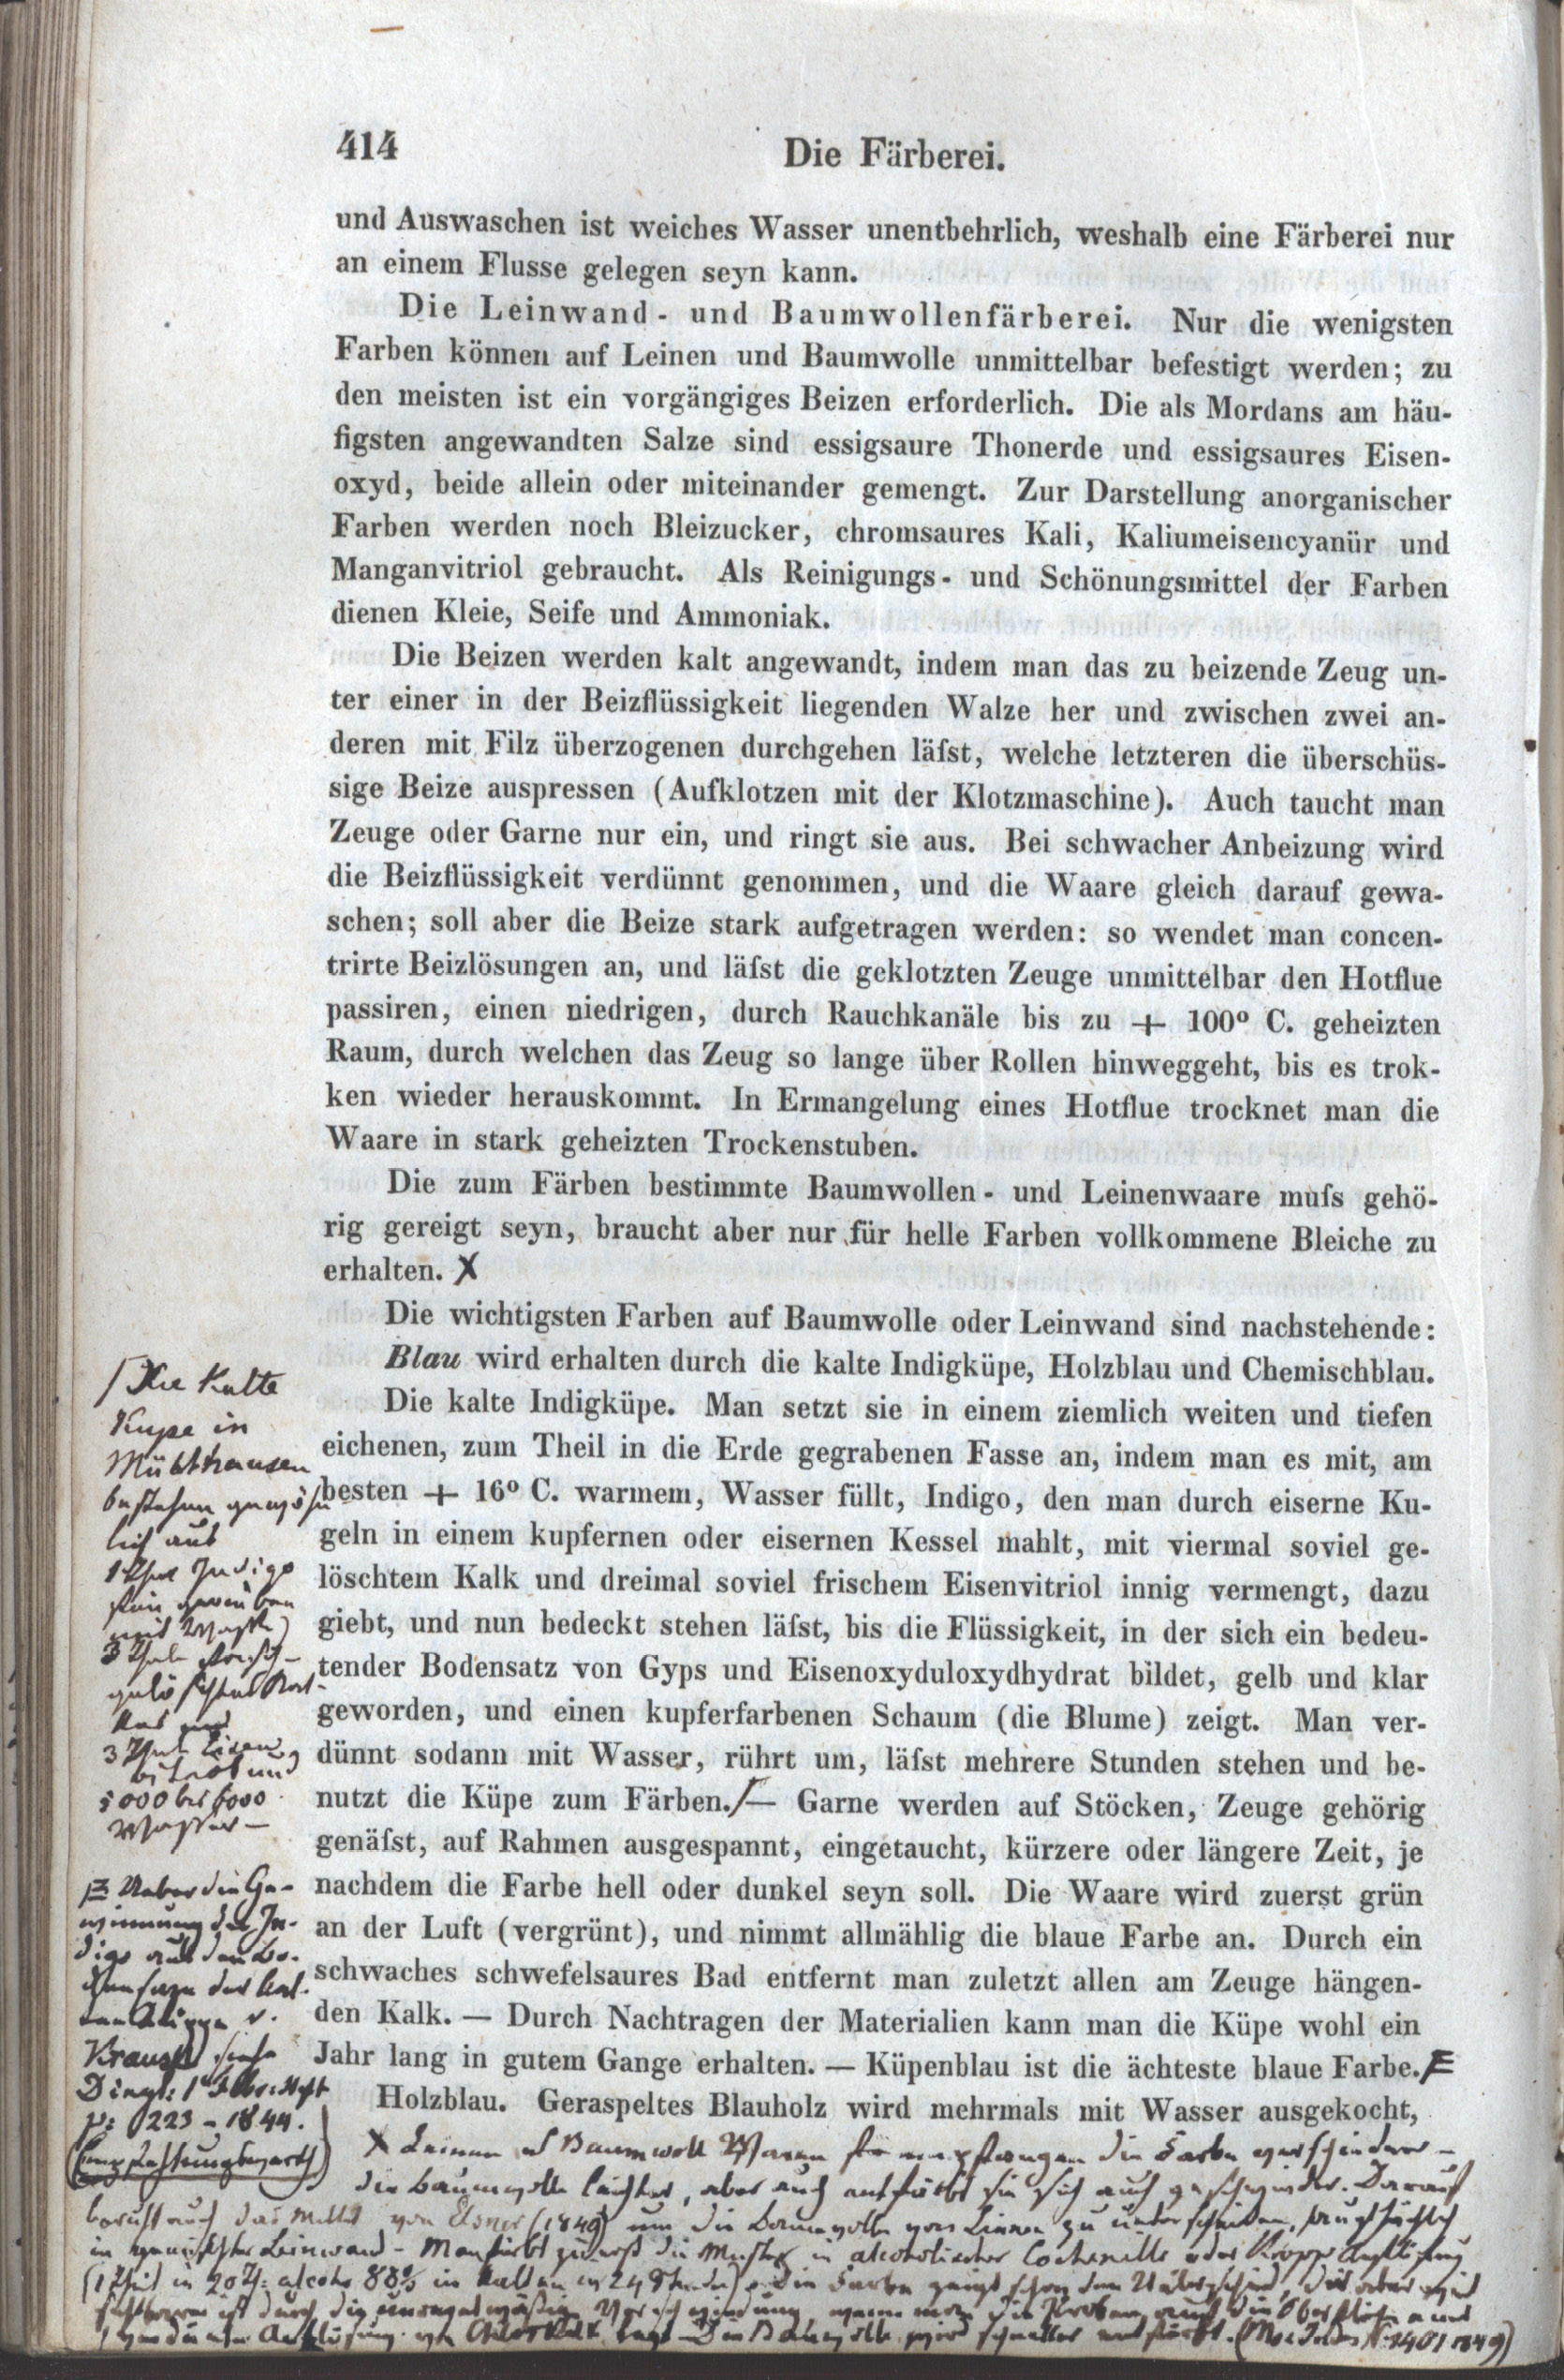 414
Die Färberei.
und Auswaschen ist weiches Wasser unentbehrlich, weshalb eine Färberei nur
an einem Flusse gelegen seyn kann.
Die Leinwand- und Baumwollenfärberei. Nur die wenigsten
Farben können auf Leinen und Baumwolle unmittelbar befestigt werden; zu
den meisten ist ein vorgängiges Beizen erforderlich. Die als Mordans am häu-
figsten angewandten Salze sind essigsaure Thonerde und essigsaures Eisen-
oxyd, beide allein oder miteinander gemengt. Zur Darstellung anorganischer
Farben werden noch Bleizucker, chromsaures Kali, Kaliumeisencyanür und
Manganvitriol gebraucht. Als Reinigungs- und Schönungsmittel der Farben
dienen Kleie, Seife und Ammoniak.
Die Beizen werden kalt angewandt, indem man das zu beizende Zeug un-
ter einer in der Beizflüssigkeit liegenden Walze her und zwischen zwei an-
deren mit Filz überzogenen durchgehen läſst, welche letzteren die überschüs-
sige Beize auspressen (Aufklotzen mit der Klotzmaschine). Auch taucht man
Zeuge oder Garne nur ein, und ringt sie aus. Bei schwacher Anbeizung wird
die Beizflüssigkeit verdünnt genommen, und die Waare gleich darauf gewa-
schen; soll aber die Beize stark aufgetragen werden: so wendet man concen-
trirte Beizlösungen an, und läſst die geklotzten Zeuge unmittelbar den Hotflue
passiren, einen niedrigen, durch Rauchkanäle bis zu + 100° C. geheizten
Raum, durch welchen das Zeug so lange über Rollen hinweggeht, bis es trok-
ken wieder herauskommt. In Ermangelung eines Hotflue trocknet man die
Waare in stark geheizten Trockenstuben.
Die zum Färben bestimmte Baumwollen- und Leinenwaare muſs gehö-
rig gereigt seyn, braucht aber nur für helle Farben vollkommene Bleiche zu
erhalten. X
Die wichtigsten Farben auf Baumwolle oder Leinwand sind nachstehende:
Blau wird erhalten durch die kalte Indigküpe, Holzblau und Chemischblau.
Die kalte Indigküpe. Man setzt sie in einem ziemlich weiten und tiefen
eichenen, zum Theil in die Erde gegrabenen Fasse an, indem man es mit, am
besten + 16° C. warmem, Wasser füllt, Indigo, den man durch eiserne Ku-
geln in einem kupfernen oder eisernen Kessel mahlt, mit viermal soviel ge-
löschtem Kalk und dreimal soviel frischem Eisenvitriol innig vermengt, dazu
giebt, und nun bedeckt stehen läſst, bis die Flüssigkeit, in der sich ein bedeu-
tender Bodensatz von Gyps und Eisenoxyduloxydhydrat bildet, gelb und klar
geworden, und einen kupferfarbenen Schaum (die Blume) zeigt. Man ver-
dünnt sodann mit Wasser, rührt um, läſst mehrere Stunden stehen und be-
nutzt die Küpe zum Färben. — Garne werden auf Stöcken, Zeuge gehörig
genäſst, auf Rahmen ausgespannt, eingetaucht, kürzere oder längere Zeit, je
nachdem die Farbe hell oder dunkel seyn soll. Die Waare wird zuerst grün
an der Luft (vergrünt), und nimmt allmählig die blaue Farbe an. Durch ein
schwaches schwefelsaures Bad entfernt man zuletzt allen am Zeuge hängen-
den Kalk. — Durch Nachtragen der Materialien kann man die Küpe wohl ein
Jahr lang in gutem Gange erhalten. — Küpenblau ist die ächteste blaue Farbe.
Holzblau. Geraspeltes Blauholz wird mehrmals mit Wasser ausgekocht,
Die Kalte
Kupe in
Mühlhausen
lich aus
Indigo
mit Wasser)
5000 bis 6000
Wasser —
Ueber die Ge-
winnung des In-
digo aus dem Bo-
Krause siehe
p: 223 - 1844.
X Leinen und Baumwoll Waren empfangen die Farbe verschieden —
die Baumwolle leichter, aber auch entfärbt sie sich auch geschwinder. Darauf
beruht auch das Mittel von Elsner (1849) um die Baumwolle vom Linnen zu unterscheiden, hauptsächlich
in gemischter Leinwand - Man färbt zuerst die Muster in alcoholischer Cochenille oder Krapp Auflösung
Die Baumwolle wird schneller entfärbt. 1849)